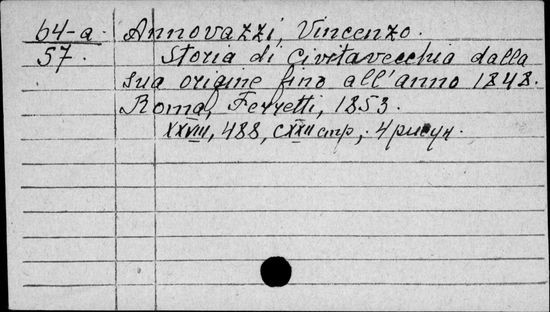 64-a. Annovazzi, Vincenzo.
57. Storia di Civitavecchia dalla
sua origine fino all'anno 1848.
Roma, Ferretti, 1853.
XXVIII, 488, CXXII стр., 4 рисун.